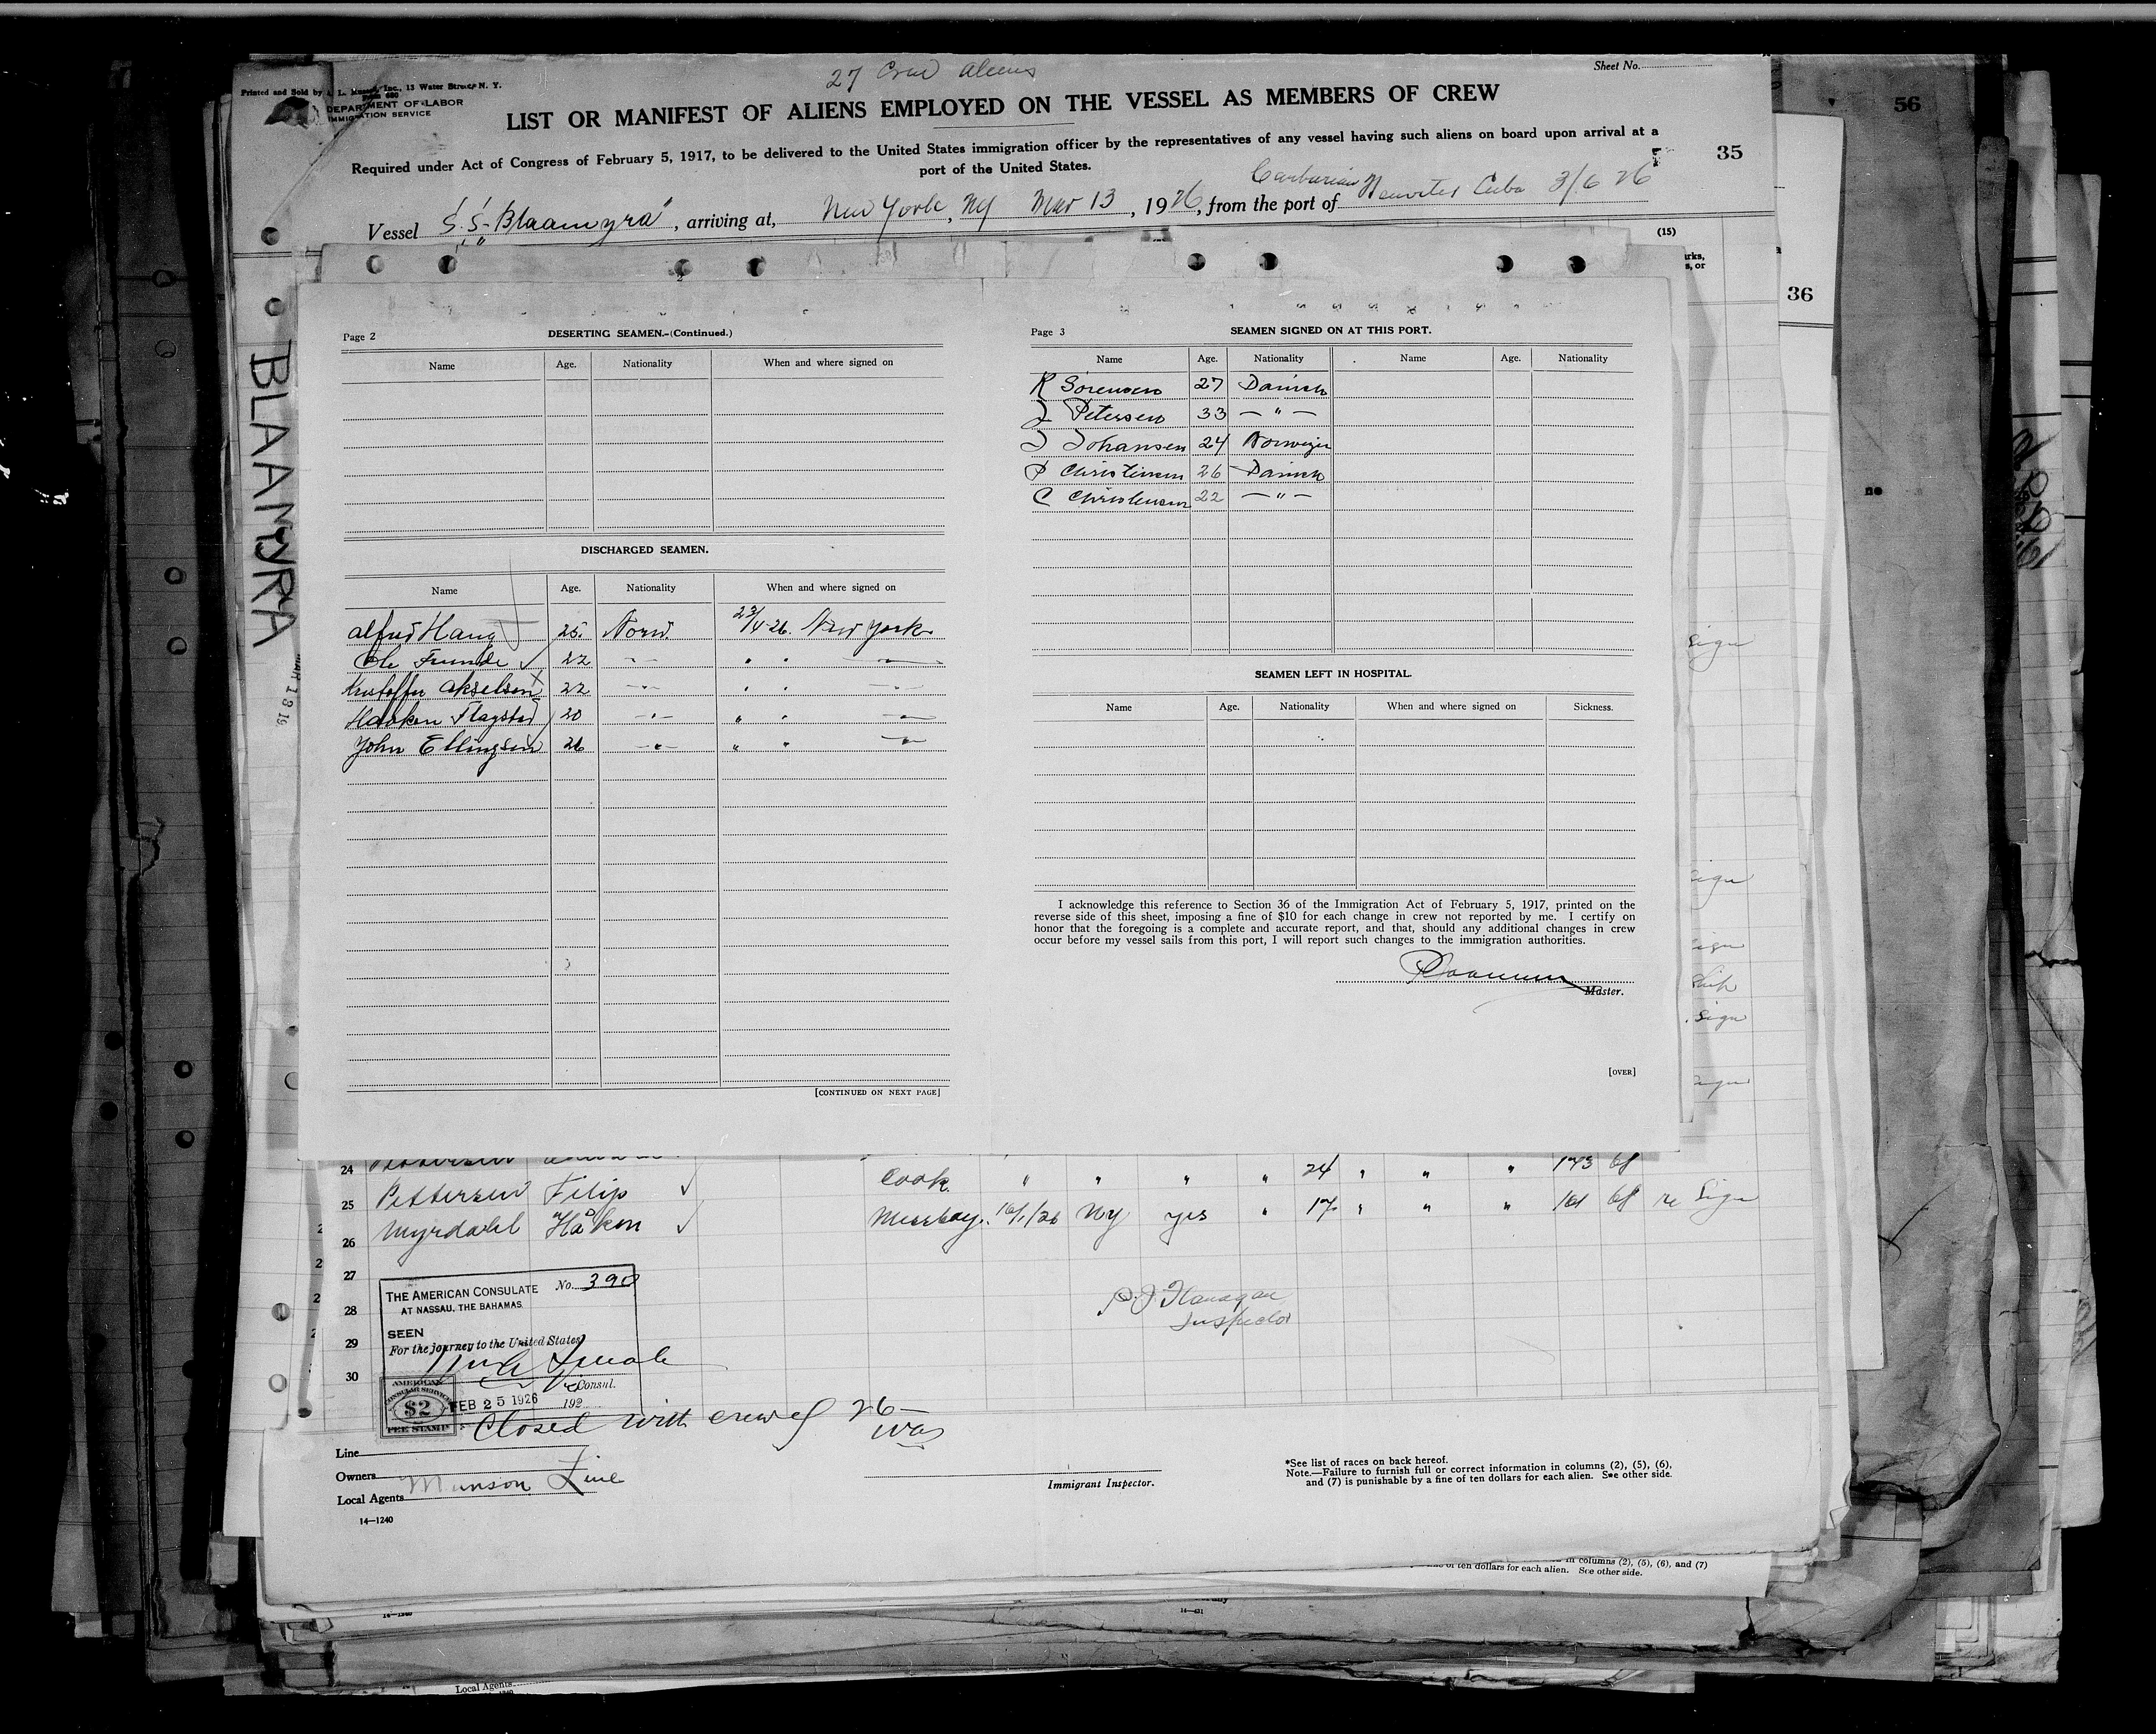 27 Crew Aliens
Sheet No.
Printed and Sold by L. Inc., 13 Water Street, N. Y.
DEPARTMENT OF LABOR
IMMIGRATION SERVICE
56
LIST OR MANIFEST OF ALIENS EMPLOYED ON THE VESSEL AS MEMBERS OF CREW
Required under Act of Congress of February 5, 1917, to be delivered to the United States immigration officer by the representatives of any vessel having such aliens on board upon arrival at a
port of the United States.
35
Vessel S.S. "Blaamyra", arriving at, New York, NY Mar 13, 1926, from the port of Cuba 3/6 26
(15)
36
BLAAMYRA
Page 2 DESERTING SEAMEN.-(Continued.)
Name Age. Nationality When and where signed on
DISCHARGED SEAMEN.
Name Age. Nationality When and where signed on
Alfred Haug 25. Norw. New York
Ole 22 " " "
Kristoffer Akselsen 22 " " "
Haakon Flagstad 20 " " "
John Ellingsen 26 " " "
[CONTINUED ON NEXT PAGE]
Page 3 SEAMEN SIGNED ON AT THIS PORT.
Name Age. Nationality Name Age. Nationality
R Sorensen 27 Danish
J Petersen 33 — " —
J Johansen 24 Norwegn
P Christensen 26 Danish
C Christensen 22 — " —
SEAMEN LEFT IN HOSPITAL.
Name Age. Nationality When and where signed on Sickness.
I acknowledge this reference to Section 36 of the Immigration Act of February 5, 1917, printed on the
reverse side of this sheet, imposing a fine of $10 for each change in crew not reported by me. I certify on
honor that the foregoing is a complete and accurate report, and that, should any additional changes in crew
occur before my vessel sails from this port, I will report such changes to the immigration authorities.
Master.
[OVER]
24
25 Pettersen Filip Cook " " " " 24 " " " 173 bf
26 Myrdahl Håkon Messboy. 16/1/26 NY yes " 17 " " " 161 bf re Sign
27
28
29
30
THE AMERICAN CONSULATE No. 390
AT NASSAU, THE BAHAMAS
SEEN
For the journey to the United States
Vice Consul.
AMERICAN
CONSULAR SERVICE
$2
FEE STAMP
FEB 25 1926 192
P.J. Flanagan
Inspector
Closed with crew of 26 —
Line
Owners
Local Agents Munson Line
14—1240
Immigrant Inspector.
*See list of races on back hereof.
Note.—Failure to furnish full or correct information in columns (2), (5), (6),
and (7) is punishable by a fine of ten dollars for each alien. See other side.
in columns (2), (5), (6), and (7)
of ten dollars for each alien. See other side.
Local Agents